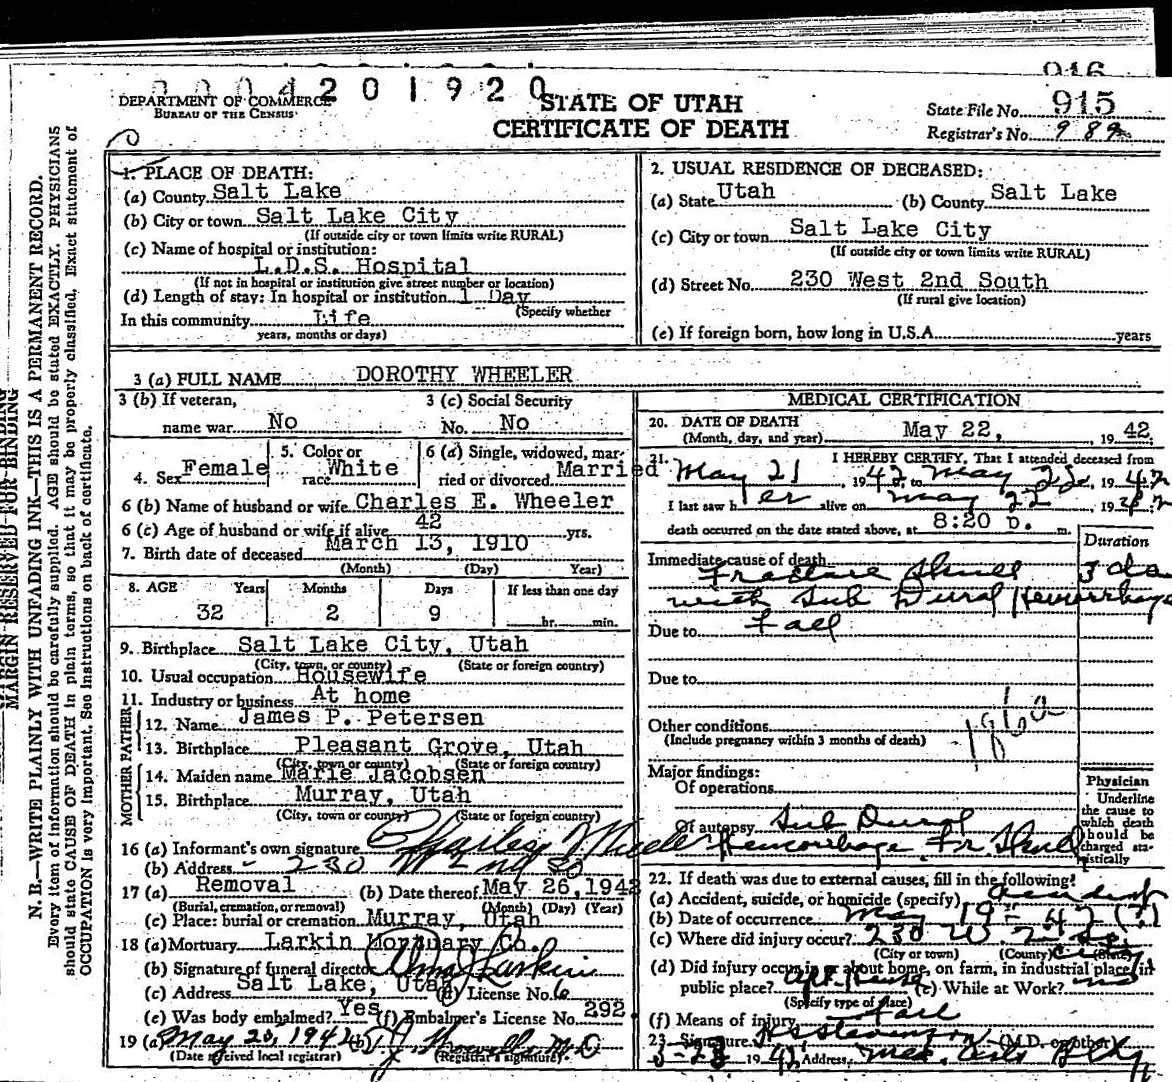 916
0004201920
DEPARTMENT OF COMMERCE
BUREAU OF THE CENSUS
STATE OF UTAH
CERTIFICATE OF DEATH
State File No. 915
Registrar's No. 989
MARGIN RESERVED FOR BINDING
N. B.—WRITE PLAINLY WITH UNFADING INK—THIS IS A PERMANENT RECORD.
Every item of information should be carefully supplied. AGE should be stated EXACTLY. PHYSICIANS
should state CAUSE OF DEATH in plain terms, so that it may be properly classified. Exact statement of
OCCUPATION is very important. See instructions on back of certificate.
1. PLACE OF DEATH:
(a) County Salt Lake
(b) City or town Salt Lake City
(If outside city or town limits write RURAL)
(c) Name of hospital or institution:
L.D.S. Hospital
(If not in hospital or institution give street number or location)
(d) Length of stay: In hospital or institution 1 Day
(Specify whether
In this community Life
years, months or days)
2. USUAL RESIDENCE OF DECEASED:
(a) State Utah (b) County Salt Lake
(c) City or town Salt Lake City
(If outside city or town limits write RURAL)
(d) Street No. 230 West 2nd South
(If rural give location)
(e) If foreign born, how long in U.S.A. years
3 (a) FULL NAME DOROTHY WHEELER
3 (b) If veteran, 3 (c) Social Security
name war No No. No
4. Sex Female 5. Color or race White 6 (a) Single, widowed, married or divorced Married
6 (b) Name of husband or wife Charles E. Wheeler
6 (c) Age of husband or wife if alive 42 yrs.
7. Birth date of deceased March 13, 1910
(Month) (Day) Year)
8. AGE Years Months Days If less than one day
32 2 9 hr. min.
9. Birthplace Salt Lake City, Utah
(City, town, or county) (State or foreign country)
10. Usual occupation Housewife
11. Industry or business At home
FATHER
12. Name James P. Petersen
13. Birthplace Pleasant Grove, Utah
(City, town or county) (State or foreign country)
MOTHER
14. Maiden name Marie Jacobsen
15. Birthplace Murray, Utah
(City, town or county) (State or foreign country)
16 (a) Informant's own signature Charles Wheeler
(b) Address 230 W
17 (a) Removal (b) Date thereof May 26, 1942
(Burial, cremation, or removal) (Month) (Day) (Year)
(c) Place: burial or cremation Murray, Utah
18 (a) Mortuary Larkin Mortuary Co.
(b) Signature of funeral director Larkin
(c) Address Salt Lake, Utah (d) License No. 6
(e) Was body embalmed? Yes (f) Embalmer's License No. 292.
19 (a) May 25, 1942 (b) T.J. Howells M.D
(Date received local registrar) (Registrar's signature)
MEDICAL CERTIFICATION
20. DATE OF DEATH
(Month, day, and year) May 22, 19 42
21. I HEREBY CERTIFY, That I attended deceased from
May 21, 19 42 to May 22, 19 42
I last saw h er alive on May 22 19 42
death occurred on the date stated above, at 8:20 p. m.
Duration
Immediate cause of death
Fracture Skull 3 da
with Sub Dural Hemorrhage
Due to Fall
Due to
Other conditions
(Include pregnancy within 3 months of death)
186a
Major findings:
Of operations
Of autopsy Sub Dural
Hemorrhage Fr. Skull
Physician
Underline
the cause to
which death
should be
charged statistically
22. If death was due to external causes, fill in the following:
(a) Accident, suicide, or homicide (specify) Accident
(b) Date of occurrence May 19 - 42 (?)
(c) Where did injury occur? 230 W 2 So. City
(City or town) (County) (State)
(d) Did injury occur in or about home, on farm, in industrial place, in
public place? Apt. House (e) While at Work? no
(Specify type of place)
(f) Means of injury Fall
23. Signature (M.D. or other)
5-23 19 42 Address Med. Arts Bldg